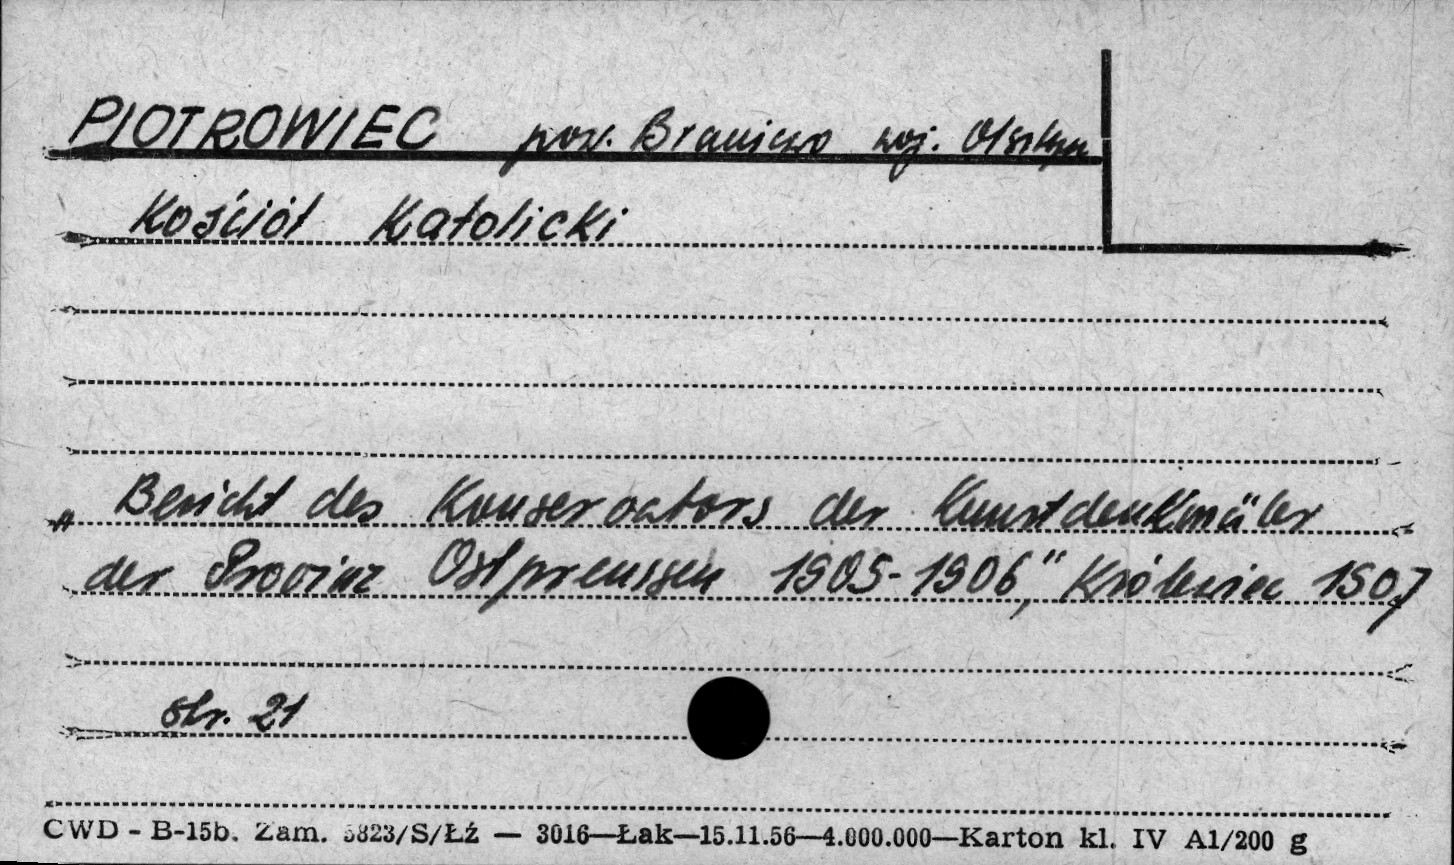 PIOTROWIEC pow. Braniewo woj. Olsztyn
Kościół Katolicki
„Bericht des Konservators der Kunstdenkmäler
der Provinz Ostpreussen 1905-1906," Królewiec 1907
str. 21
CWD - B-15b. Zam. 5823/S/Łź — 3016—Łak—15.11.56—4.000.000—Karton kl. IV A1/200 g